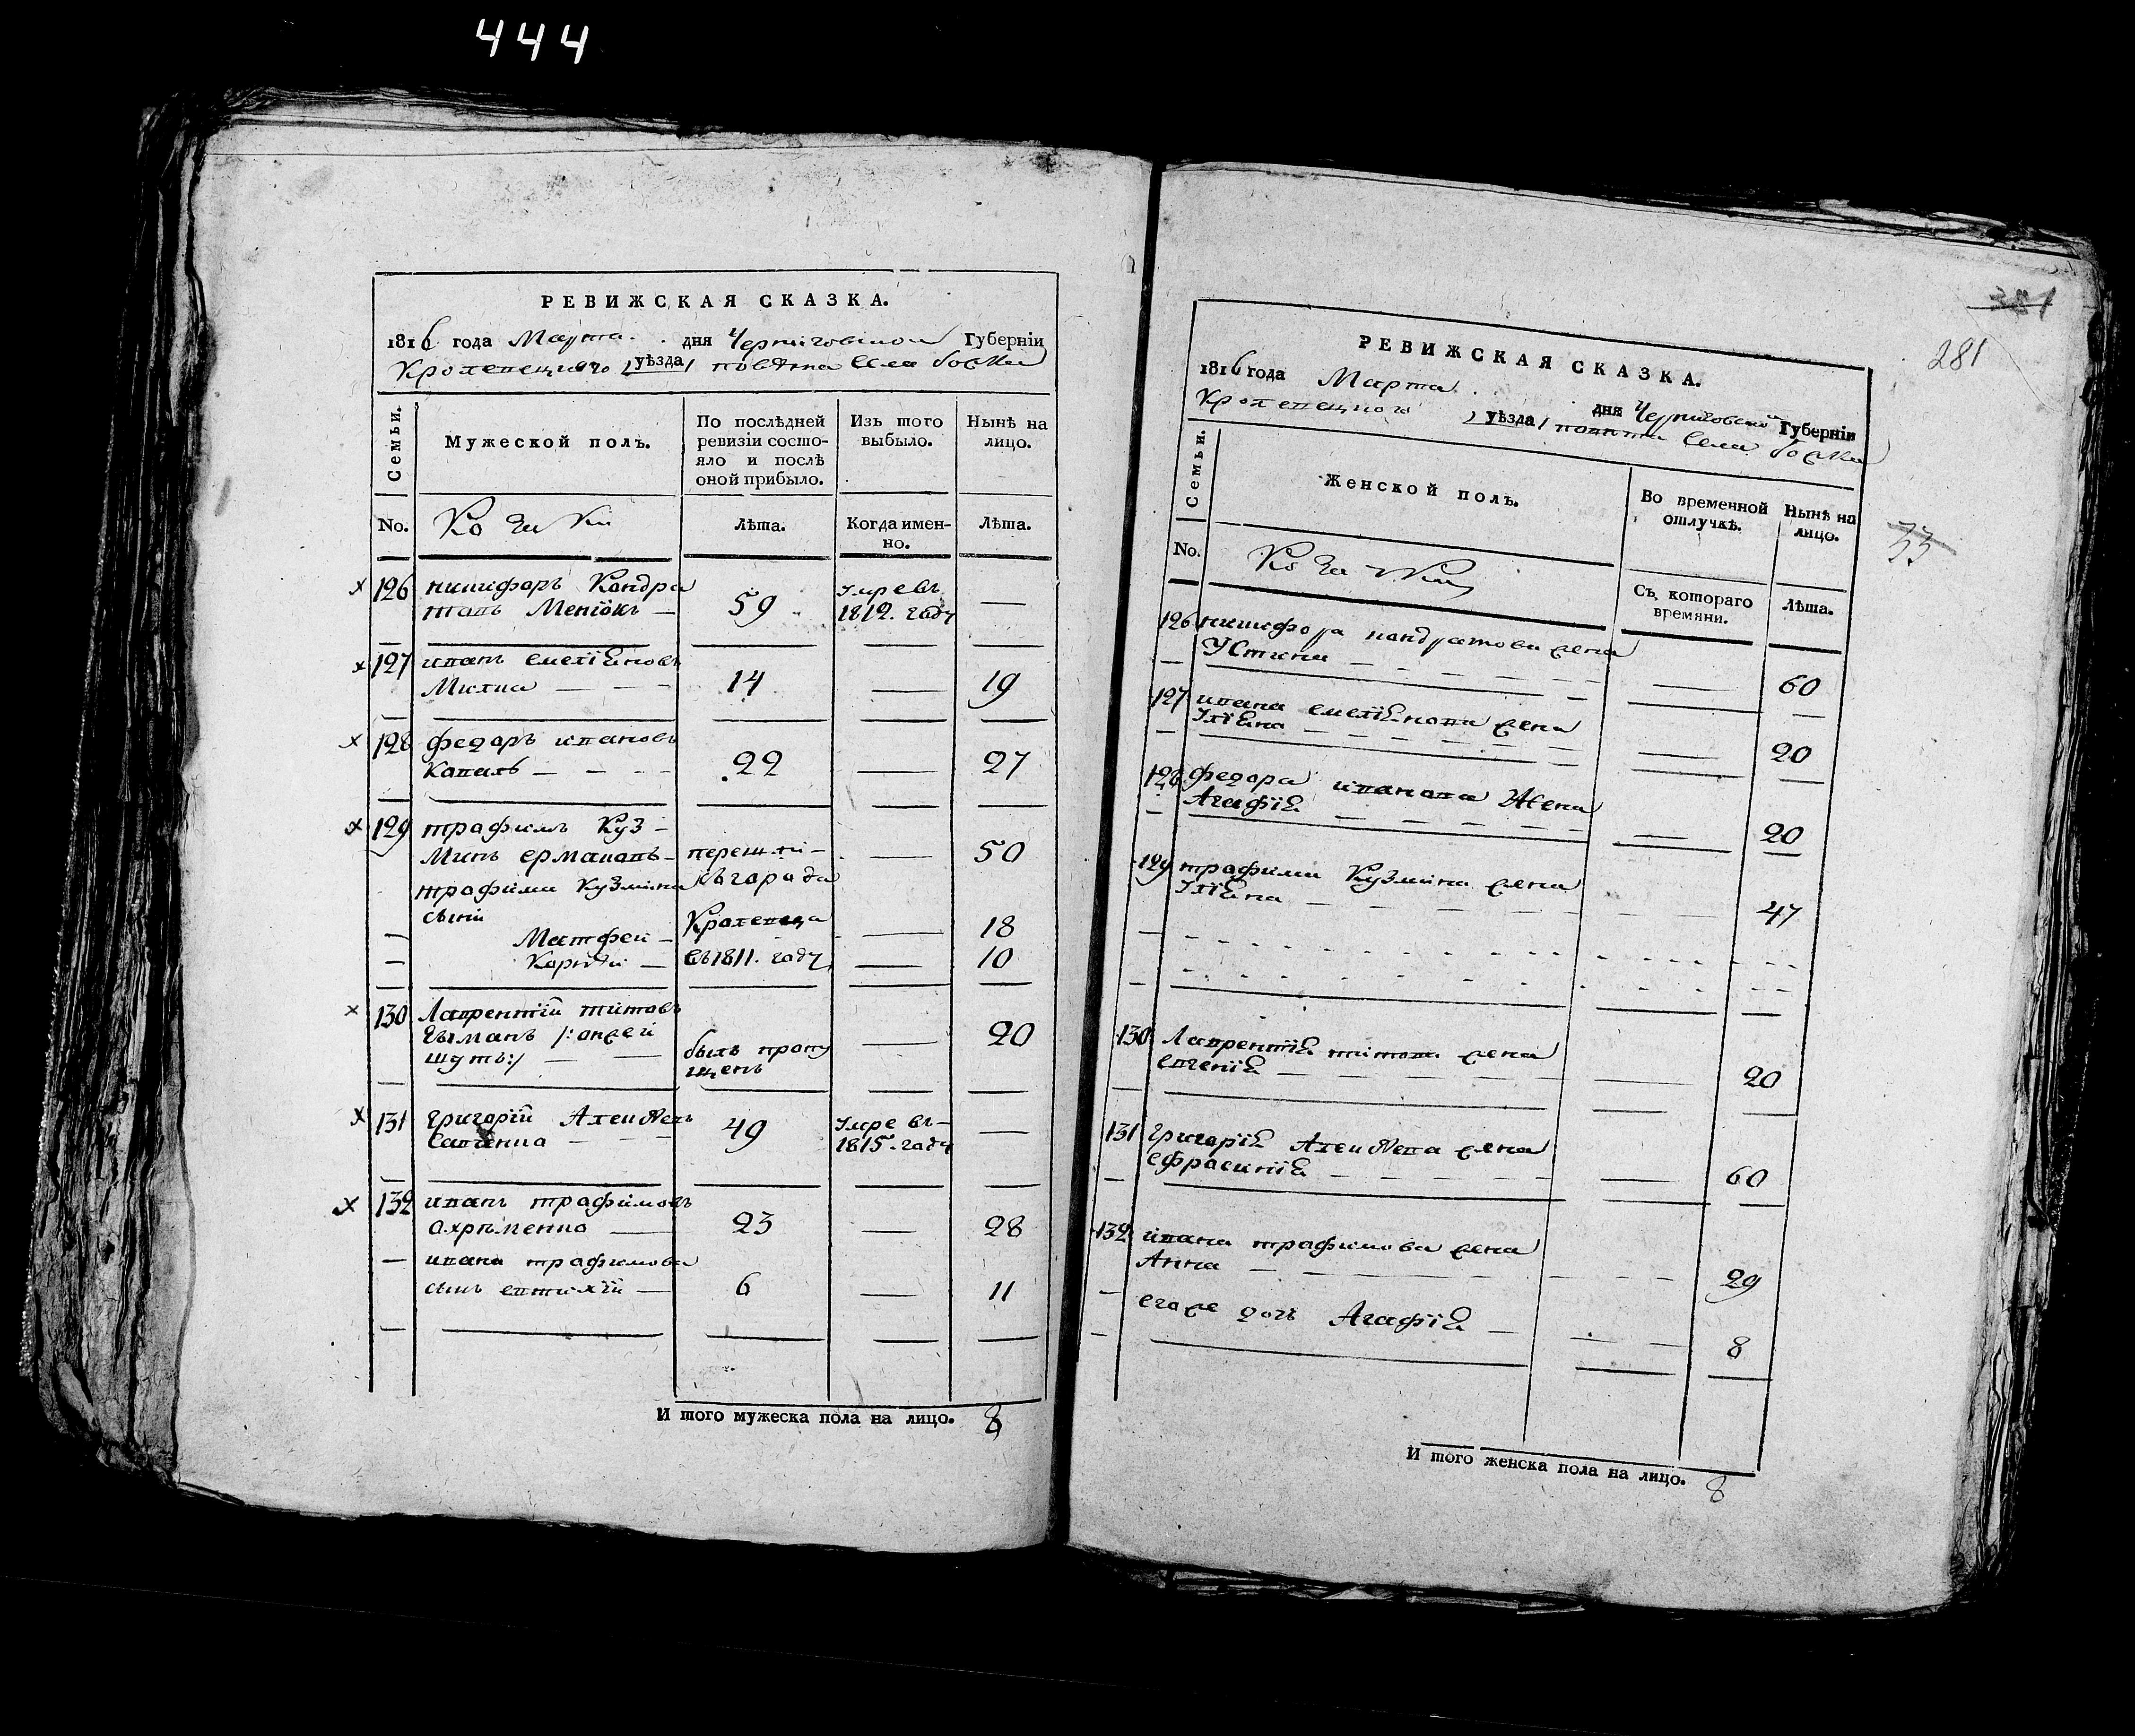 444
РЕВИЖСКАЯ СКАЗКА.
1816 года Марта дня Черниговской Губерніи
Кролевецкого уѣзда повѣта села
Семьи.
Мужеской полъ.
По послѣдней ревизіи состо-
яло и послѣ
оной прибыло.
Изъ того
выбыло.
Нынѣ на
лицо.
No.
Козаки
Лѣта.
Когда имен-
но.
Лѣта.
126 никифоръ Кондра умре въ
товъ 59 — 1812. году —
127 иванъ емеліяновъ
Михно — 14 — 19
128 федоръ ивановъ
Коваль — 22 — 27
129 трофимъ Куз-
минъ ермаковъ — перешли — 50
трофима Кузмина съ города
сыни Кролевца
Матфей — 18
— въ 1811. году 10
130 Лаврентій титовъ
20
былъ пропу
щенъ
131 григорій умре въ —
49 1815. году —
132 иванъ трофимовъ
охрѣменко — 23 — 28
— ивана трофимова
сынъ евтихій — 6 — 11
И того мужеска пола на лицо. 8
381
281
33
РЕВИЖСКАЯ СКАЗКА.
1816 года Марта дня Черниговской Губерніи
Кролевецкого уѣзда повѣта села
Семьи.
Женской полъ.
Во временной
отлучкѣ.
Нынѣ на
лицо.
No.
Козачки
Съ котораго
времяни.
Лѣта.
126 никифора кондратова жена
Устина — 60
127 ивана емеліянова жена
Уліяна — 20
128 федора иванова жена
Агафія — 20
129 трофима Кузмина жена
Уліяна — 47
130 Лаврентія титова жена
евгенія — 20
131 григорія жена
ефросинія — 60
132 ивана трофимова жена
Анна — 29
егоже дочь Агафія — 8
И того женска пола на лицо. 8